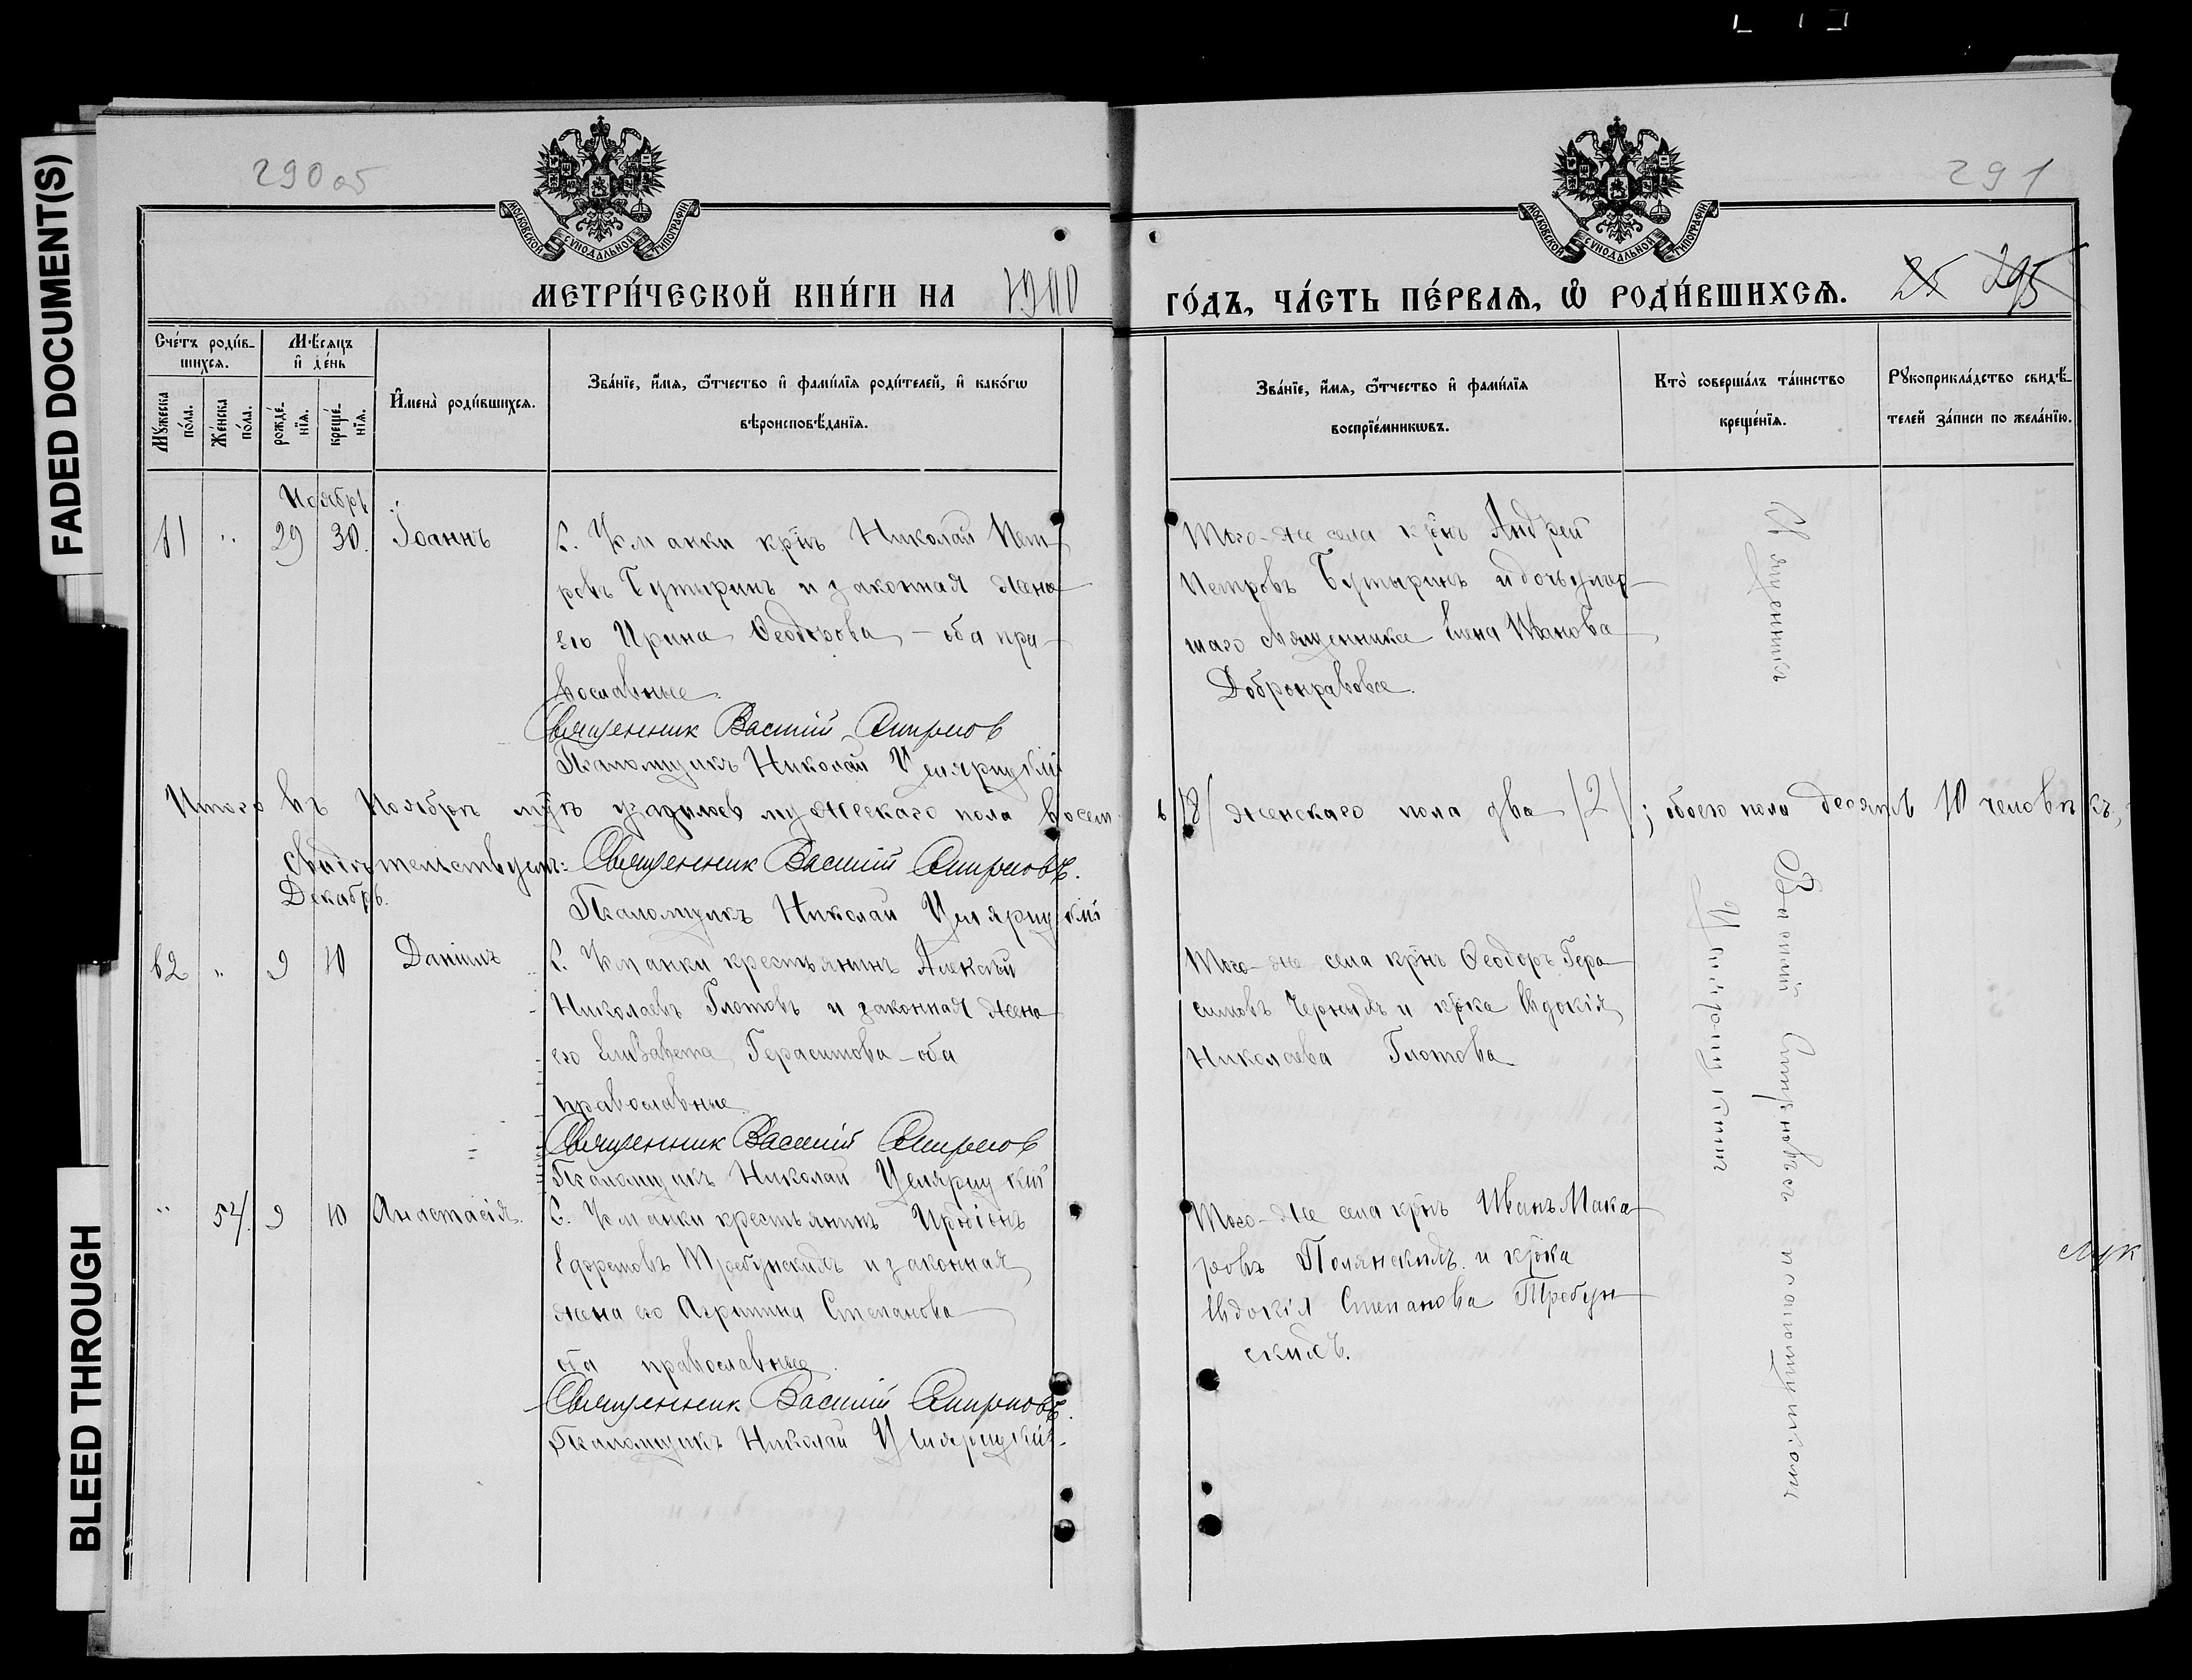 FADED DOCUMENT(S)
BLEED THROUGH
290 об
291
МОСКОВСКОЙ СѴНОДАЛЬНОЙ ТИПОГРАФІИ
МОСКОВСКОЙ СѴНОДАЛЬНОЙ ТИПОГРАФІИ
МЕТРИ́ЧЕСКОЙ КНИ́ГИ НА 1900
ГО́ДЪ, ЧА́СТЬ ПЕ́РВАЯ, Ѡ РОДИ́ВШИХСЯ. 25 295
Сче́тъ роди́в-
шихся.
Мꙋ́жеска по́ла.
Же́нска по́ла.
Мѣ́сяцъ
и҆ де́нь
рожде́-
нїя.
креще́-
нїя.
И҆мена̀ роди́вшихся.
Зва́нїе, и҆́мя, ѻ҆́тчество и҆ фами́лїя роди́телей, и҆ како́гѡ
вѣроисповѣ́данїя.
Зва́нїе, и҆́мя, ѻ҆́тчество и҆ фами́лїя
воспрїе́мникѡвъ.
Кто̀ соверша́лъ та́инство
креще́нїя.
Рꙋкоприкла́дство свидѣ́-
телей за́писи по жела́нїю.
Ноябрь
61 " 29 30. Іоаннъ
С. Куманки крнъ Николай Пет-
ровъ Бутыринъ и законная жена
его Ирина Ѳеодорова – оба пра-
вославные.
Священник Василій Смирнов
Псаломщикъ Николай
Того-же села крнъ Андрей
Петровъ Бутыринъ и дочь умер-
шаго священника Елена Иванова
Добронравова.
Итого въ Ноябрѣ родилось мужескаго пола восемь /8/ женскаго пола два /2/; обоего пола десять 10 человѣкъ,
свидѣтельствуютъ: Священник Василій Смирновъ.
Псаломщикъ Николай
Декабрь.
62 " 9 10 Даніилъ
С. Куманки крестьянинъ Алексѣй
Николаевъ Глотовъ и законная жена
его Елизавета Герасимова – оба
православные.
Священник Василій Смирнов
Псаломщикъ Николай
Того-же села крнъ Ѳеодоръ Гера-
симовъ Черныхъ и крка Евдокія
Николаева Глотова
" 54. 9 10 Анастасія.
С. Куманки крестьянинъ
Ефремовъ Требунскихъ и законная
жена его Агрипина Степанова
оба православные.
Священник Василій Смирновъ.
Псаломщикъ Николай
Того-же села крнъ Иванъ Мака-
ровъ Полянскихъ и крка
Евдокія Степанова Требун-
скихъ.
Священникъ
Василій Смирновъ съ псаломщикомъ